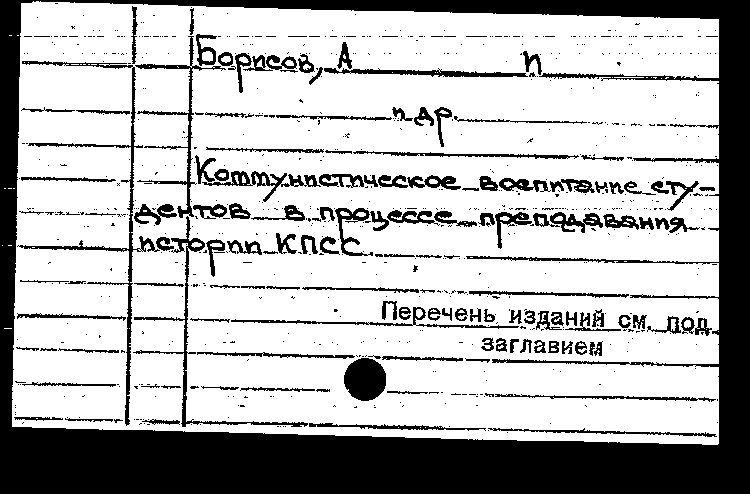 Борисов, А П
и др.
Коммунистическое воспитание сту-
дентов в процессе преподавания
истории КПСС
Перечень изданий см. под
заглавием